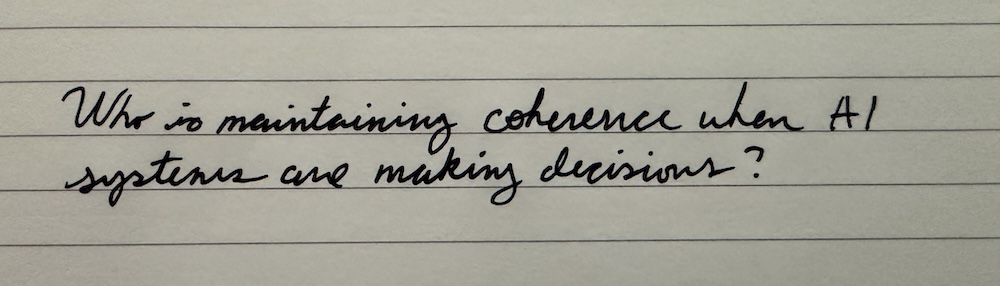 Who is maintaining coherence when AI
systems are making decisions?